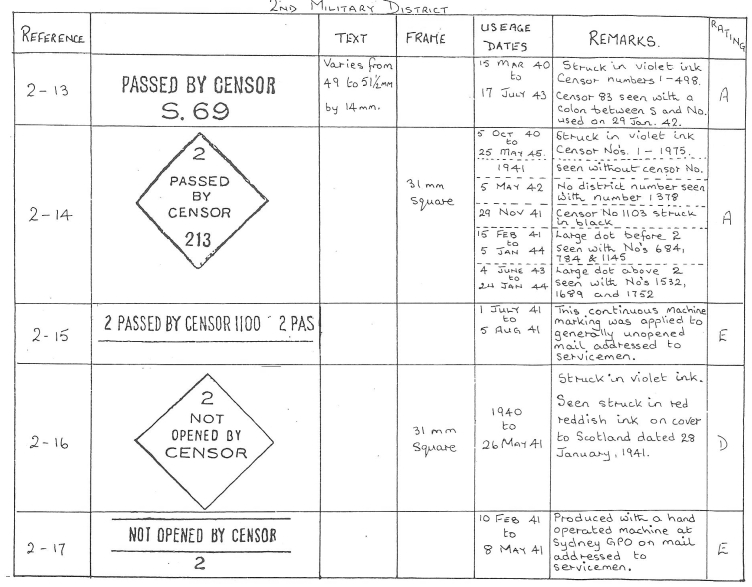 2ND MILITARY DISTRICT
REFERENCE
TEXT
FRAME
USEAGE
DATES
REMARKS.
RATING
2-13
PASSED BY CENSOR
S. 69
Varies from
49 to 51½mm
by 14mm.
15 MAR 40
to
17 JULY 43
Struck in violet ink
Censor numbers 1-498.
Censor 83 seen with a
colon between S and No.
used on 29 Jan. 42.
A
2-14
2
PASSED
BY
CENSOR
213
31mm
Square
5 OCT 40
to
25 MAY 45.
Struck in violet ink
Censor No's. 1-1975.
1941
seen without censor No.
5 MAY 42
No district number seen
with number 1378
29 NOV 41
Censor No 1103 struck
in black
15 FEB 41
to
5 JAN 44
Large dot before 2
seen with No's 684,
784 & 1145
4 JUNE 43
to
24 JAN 44
Large dot above 2
seen with No's 1532,
1689 and 1752
A
2-15
2 PASSED BY CENSOR 1100 2 PAS
1 JULY 41
to
5 AUG 41
This continuous machine
marking was applied to
generally unopened
mail addressed to
servicemen.
E
2-16
2
NOT
OPENED BY
CENSOR
31mm
Square
1940
to
26 MAY 41
Struck in violet ink.
Seen struck in red
reddish ink on cover
to Scotland dated 28
January, 1941.
D
2-17
NOT OPENED BY CENSOR
2
10 FEB 41
to
8 MAY 41
Produced with a hand
operated machine at
Sydney GPO on mail
addressed to
servicemen.
E